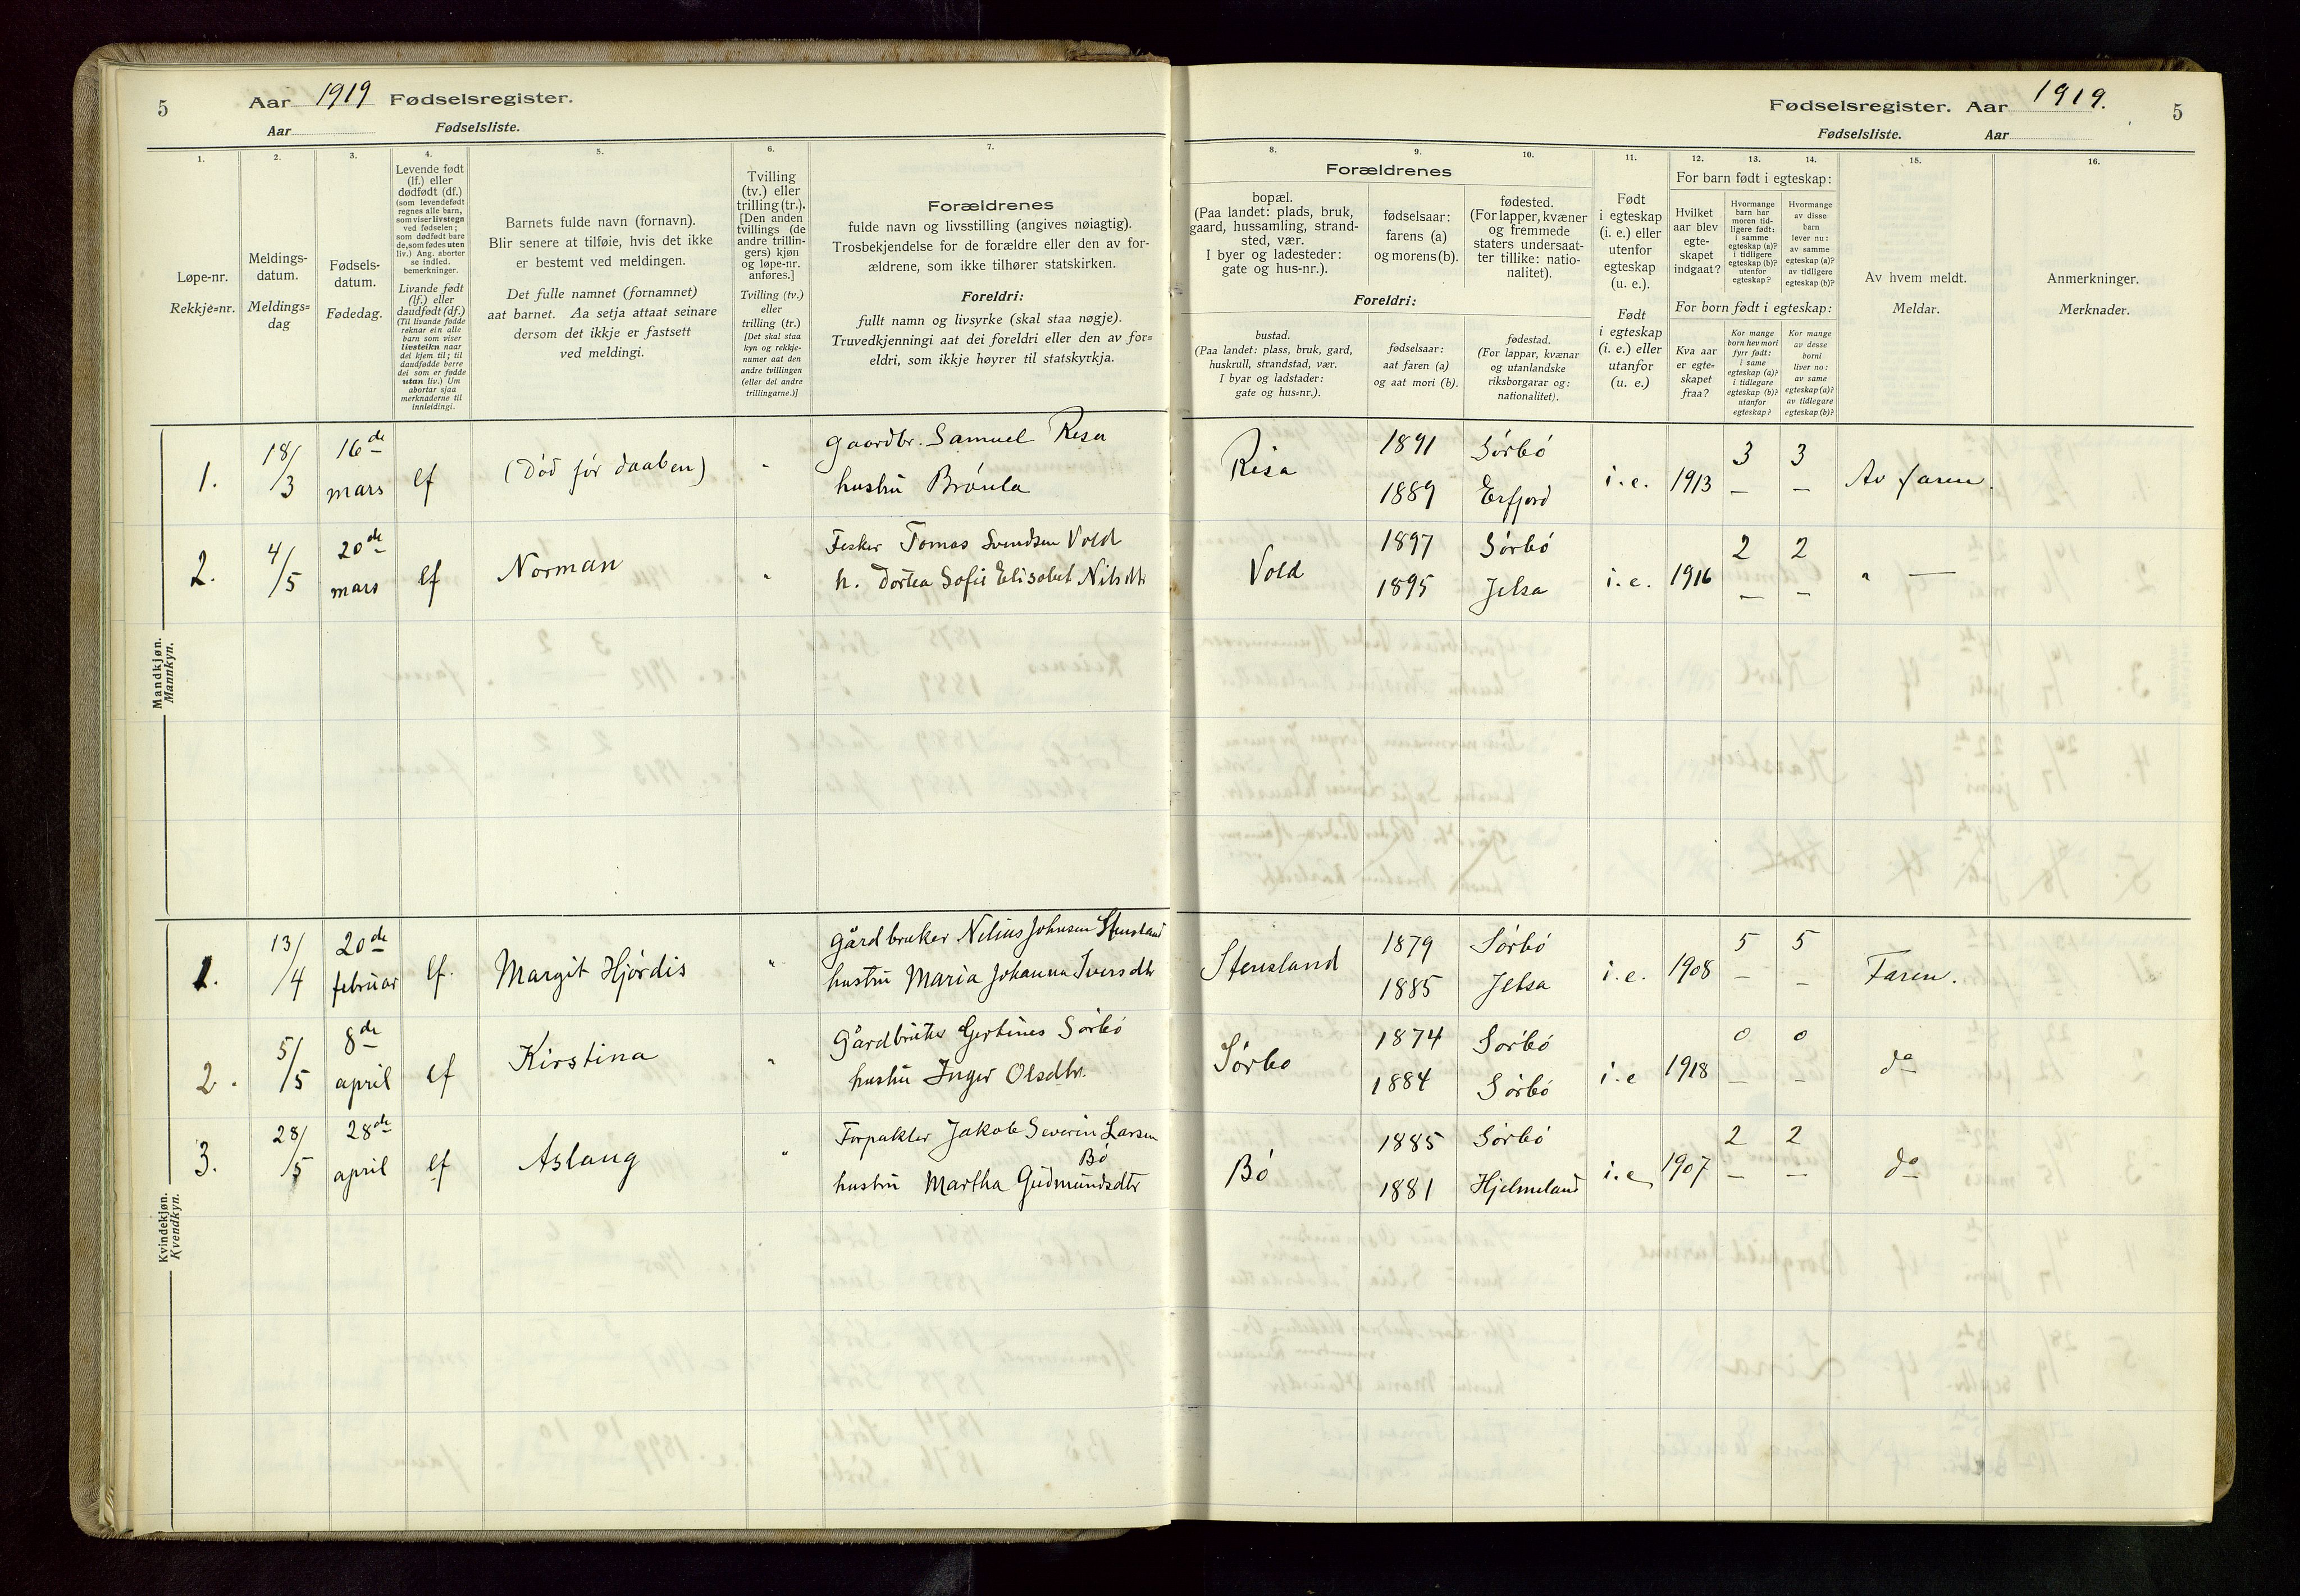 5
Aar 1919 Fødselsregister.
Aar Fødselsliste.
1.
2.
3.
4.
5.
6.
7.
Løpe-nr.
Rekkje=nr.
Meldings-
datum.
Meldings=
dag
Fødsels-
datum.
Fødedag.
Levende født
(lf.) eller
dødfødt (df.)
(som levendefødt
regnes alle barn,
som viser livstegn
ved fødselen;
som dødfødt bare
de, som fødes uten
liv.) Ang. aborter
se indled.
bemerkninger.
Livande født
(lf.) eller
daudfødt (df.)
(Til livande fødde
reknar ein alle
barn som viser
livsteikn naar
dei kjem til; til
daudfødde berre
dei som er fødde
utan liv.) Um
abortar sjaa
merknaderne til
innleidingi.
Barnets fulde navn (fornavn).
Blir senere at tilføie, hvis det ikke
er bestemt ved meldingen.
Det fulle namnet (fornamnet)
aat barnet. Aa setja attaat seinare
dersom det ikkje er fastsett
ved meldingi.
Tvilling
(tv.) eller
trilling (tr.).
[Den anden
tvillings (de
andre trillin-
gers) kjøn
og løpe-nr.
anføres.]
Tvilling (tv.)
eller
trilling (tr.)
[Det skal staa
kyn og rekkje-
numer aat den
andre tvillingen
(eller dei andre
trillingarne.)]
Forældrenes
fulde navn og livsstilling (angives nøiagtig).
Trosbekjendelse for de forældre eller den av for-
ældrene, som ikke tilhører statskirken.
Foreldri:
fullt namn og livsyrke (skal staa nøgje).
Truvedkjenningi aat dei foreldri eller den av for=
eldri, som ikkje høyrer til statskyrkja.
Mandkjøn.
Mannkyn.
1.
18/3
16de
mars
lf
(Død før daaben)
"
Gaardbr. Samuel Risa
hustru Brønla
2.
4/5
20de
mars
lf
Norman
"
Fisker Tomas Svendsen Vold
h. Dortea Sofie Elisabet Nilsdtr
Kvindekjøn.
Kvendkyn.
1.
13/4
20de
februar
lf.
Margit Hjørdis
"
Gårdbruker Nilius Johnsen Stensland
hustru Maria Johanna Iversdtr
2.
5/5
8de
april
lf
Kirstina
"
Gårdbruker Gertines Sørbø
hustru Inger Olsdtr.
3.
28/5
28de
april
lf
Aslaug
"
Forpakter Jakob Severin Larsen
Bø
hustru Martha Gudmundsdtr
Fødselsregister. Aar 1919.
5
Fødselsliste. Aar
8.
9.
10.
11.
12.
13.
14.
15.
16.
Forældrenes
bopæl.
(Paa landet: plads, bruk,
gaard, hussamling, strand-
sted, vær.
I byer og ladesteder:
gate og hus-nr.).
fødselsaar:
farens (a)
og morens (b).
fødested.
(For lapper, kvæner
og fremmede
staters undersaat-
ter tillike: natio-
nalitet).
Foreldri:
bustad.
(Paa landet: plass, bruk, gard,
huskrull, strandstad, vær.
I byar og ladstader:
gate og hus=nr.).
fødselsaar:
aat faren (a)
og aat mori (b).
fødestad.
(For lappar, kvænar
og utanlandske
riksborgarar og:
nationalitet).
Født
i egteskap
(i. e.) eller
utenfor
egteskap
(u. e.).
Født
i egteskap
(i. e.) eller
utanfor
(u. e.)
For barn født i egteskap:
Hvilket
aar blev
egte-
skapet
indgaat?
Hvormange
barn har
moren tid-
ligere født:
i samme
egteskap (a)?
i tidligere
egteskap (b)?
utenfor
egteskap?
Hvormange
av disse
barn
lever nu:
av samme
egteskap (a)?
av tidligere
egteskap (b)?
For born født i egteskap:
Kva aar
er egte=
skapet
fraa?
Kor mange
born hev mori
fyrr født:
i same
egteskap (a)?
i tidlegare
egteskap (b)?
utanfor
egteskap?
Kor mange
av desse
borni
liver no:
av same
egteskap (a)?
av tidlegare
egteskap (b)?
Av hvem meldt.
Meldar.
Anmerkninger.
Merknader.
Risa
1891
1889
Sørbø
Erfjord
i. e.
1913
3
–
3
–
Av faren.
Vold
1897
1895
Sørbø
Jelsa
i. e.
1916
2
–
2
–
" —
Stensland
1879
1885
Sørbø
Jelsa
i. e.
1908
5
–
5
–
Faren.
Sørbø
1874
1884
Sørbø
Sørbø
i. e
1918
0
–
0
–
do
Bø
1885
1881
Sørbø
Hjelmeland
i. e
1907
2
–
2
–
do